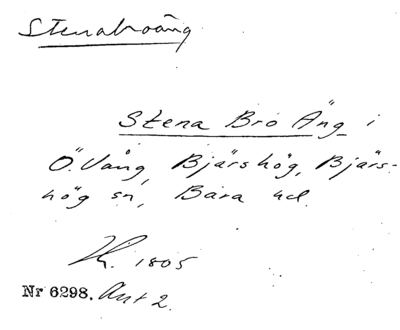 Stenabroäng
Stena Bro Äng i
Ö. Vång, Bjärshög, Bjärs-
hög sn, Bara hd.
1805
Nr 6298. Akt 2.